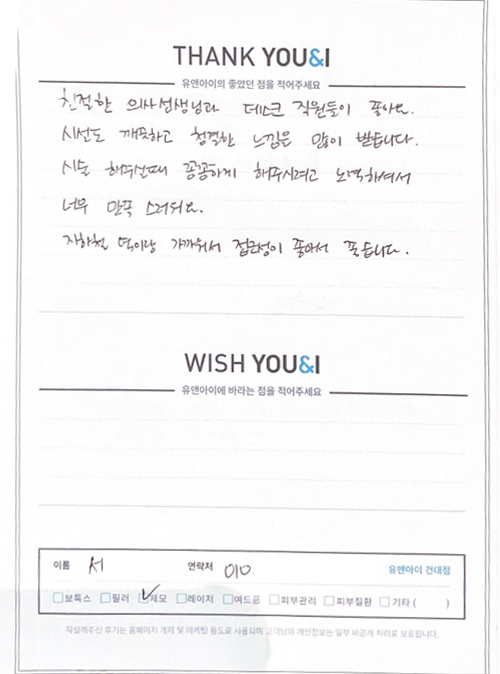 THANK YOU&I
유앤아이의 좋았던 점을 적어주세요
친절한 의사선생님과 데스크 직원들이 좋아요.
시설도 깨끗하고 청결한 느낌은 많이 받습니다.
시술 해주실때 꼼꼼하게 해주시려고 노력하셔서
너무 만족 스러워요.
지하철 역이랑 가까워서 접근성이 좋아서 좋습니다.
WISH YOU&I
유앤아이에 바라는 점을 적어주세요
이름 서 연락처 010 유앤아이 건대점
보톡스 필러 제모 레이저 여드름 피부관리 피부질환 기타 ( )
작성해주신 후기는 홈페이지 게재 및 마케팅 용도로 사용되며 고객님의 개인정보는 일부 비공개 처리로 보호됩니다.